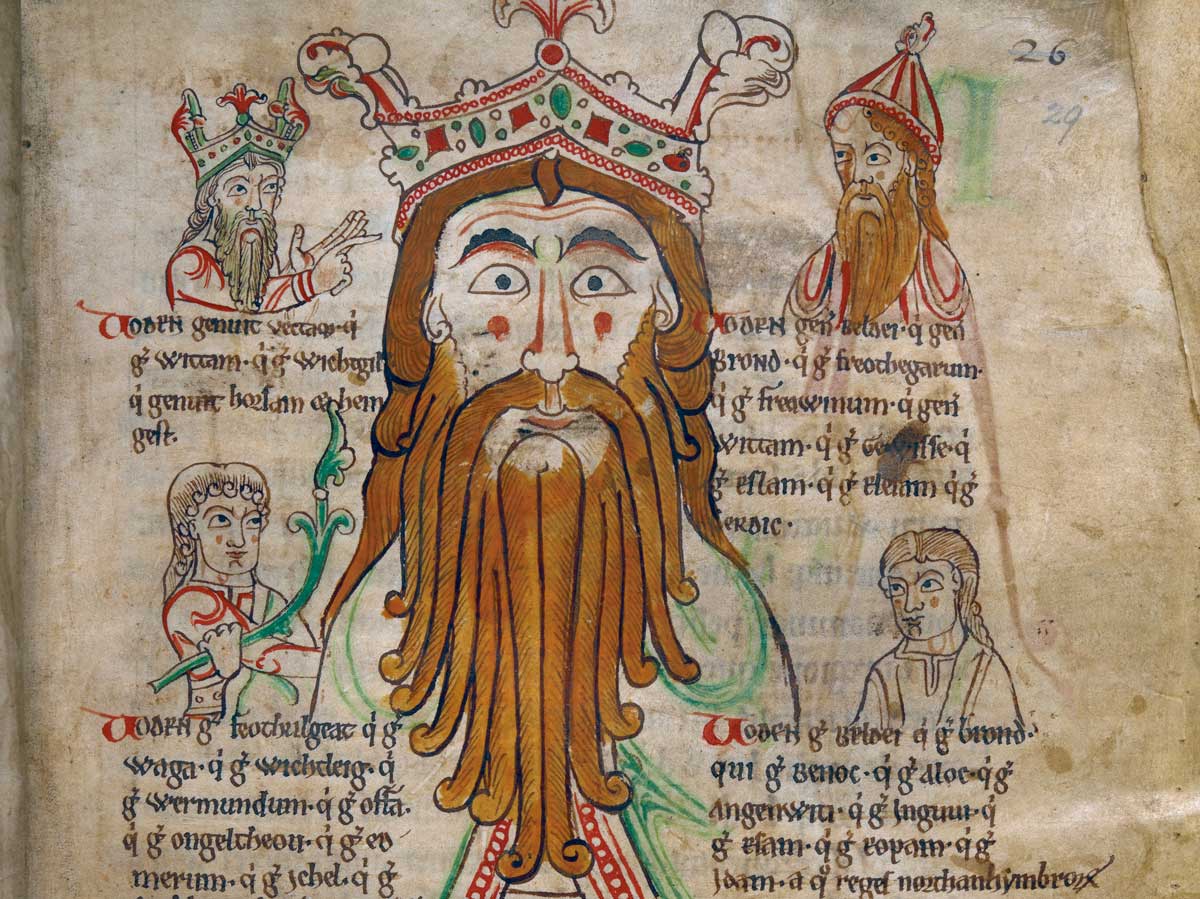 26
29
Uoden genuit vectam · q̇
g̃ wittam · q̇ g̃ wichtgil
q̇ genuit horsam et hen
gest.
Uoden geñ Beldei · q̇ geñ
Brond · q̇ g̃ freothegarum ·
q̇ g̃ freawinum · q̇ geñ
wittam · q̇ g̃ Gewisse · q̇
g̃ eslam · q̇ g̃ elesam q̇ g̃
Cerdic ·
Uoden g̃ feothulgeat q̇ g̃
waga · q̇ g̃ wichtleig · q̇
g̃ wermundum · q̇ g̃ offã.
q̇ g̃ ongeltheou · q̇ g̃ eo
merum · q̇ g̃ Ichel · q̇ g̃
Uoden g̃ Beldei q̇ g̃ brond ·
qui g̃ Benoc · q̇ g̃ aloc · q̇ g̃
Angenwiti · q̇ g̃ Inguui · q̇
g̃ esam · q̇ g̃ eopam · q̇ g̃
Idam · a q̊ reges northanhymbroꝝ